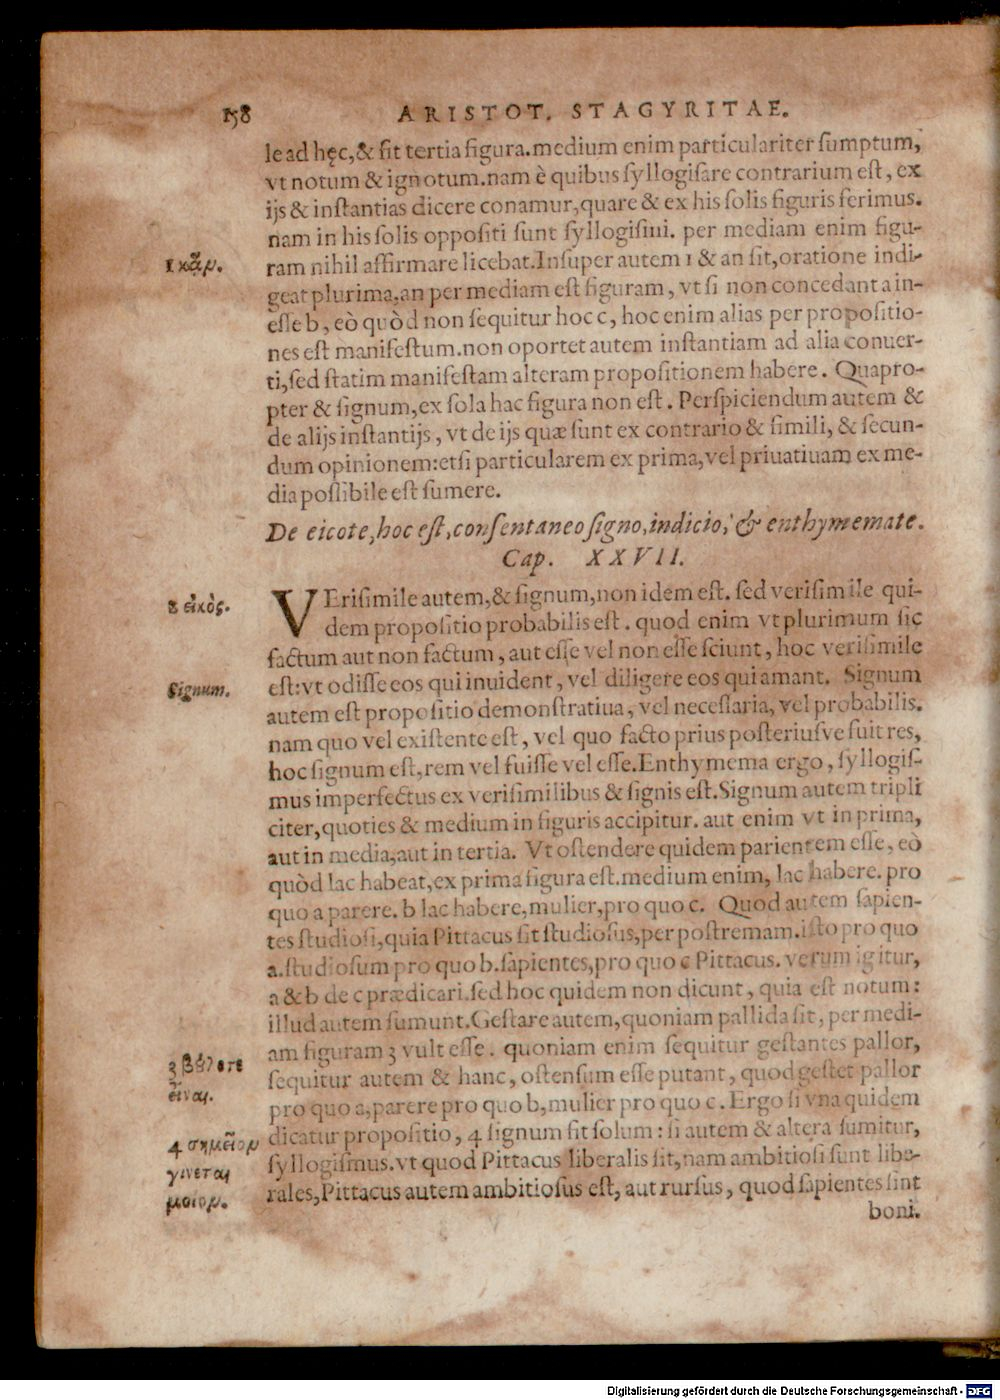 158 ARISTOT. STAGYRITAE.
le ad hęc,& fit tertia figura.medium enim particulariter sumptum,
vt notum & ignotum.nam è quibus syllogisare contrarium est, ex
ijs & instantias dicere conamur,quare & ex his solis figuris ferimus.
nam in his solis oppositi sunt syllogismi. per mediam enim figu-
1 κἄν.
ram nihil affirmare licebat.Insuper autem 1 & an sit,oratione indi-
geat plurima,an per mediam est figuram, vt si non concedant a in-
esse b, eò quòd non sequitur hoc c, hoc enim alias per propositio-
nes est manifestum.non oportet autem instantiam ad alia conuer-
ti,sed statim manifestam alteram propositionem habere. Quapro-
pter & signum,ex sola hac figura non est. Perspiciendum autem &
de alijs instantijs, vt de ijs quæ sunt ex contrario & simili, & secun-
dum opinionem:etsi particularem ex prima,vel priuatiuam ex me-
dia possibile est sumere.
De eicote,hoc est,consentaneo signo,indicio, & enthymemate.
Cap. XXVII.
2 εἰκὸς.
VErisimile autem,& signum,non idem est. sed verisimile qui-
dem propositio probabilis est. quod enim vt plurimum sic
factum aut non factum, aut esse vel non esse sciunt, hoc verisimile
Signum.
est:vt odisse eos qui inuident, vel diligere eos qui amant. Signum
autem est propositio demonstratiua, vel necessaria, vel probabilis.
nam quo vel existente est, vel quo facto prius posteriusve fuit res,
hoc signum est,rem vel fuisse vel esse.Enthymema ergo, syllogis-
mus imperfectus ex verisimilibus & signis est.Signum autem tripli
citer,quoties & medium in figuris accipitur. aut enim vt in prima,
aut in media,aut in tertia. Vt ostendere quidem parientem esse, eò
quòd lac habeat,ex prima figura est.medium enim, lac habere. pro
quo a parere. b lac habere,mulier,pro quo c. Quod autem sapien-
tes studiosi,quia Pittacus sit studiosus,per postremam.isto pro quo
a.studiosum pro quo b.sapientes,pro quo c Pittacus. verum igitur,
a & b de c prædicari.sed hoc quidem non dicunt, quia est notum:
illud autem sumunt.Gestare autem,quoniam pallida sit, per medi-
3 βούλεται
am figuram 3 vult esse. quoniam enim sequitur gestantes pallor,
εἶναι.
sequitur autem & hanc, ostensum esse putant, quod gestet pallor
pro quo a,parere pro quo b,mulier pro quo c. Ergo si vna quidem
4 σημεῖον
dicatur propositio, 4 signum fit solum: si autem & altera sumitur,
γίνεται
syllogismus.vt quod Pittacus liberalis sit,nam ambitiosi sunt libe-
μόνον.
rales,Pittacus autem ambitiosus est, aut rursus, quod sapientes sint
boni.
Digitalisierung gefördert durch die Deutsche Forschungsgemeinschaft - DFG